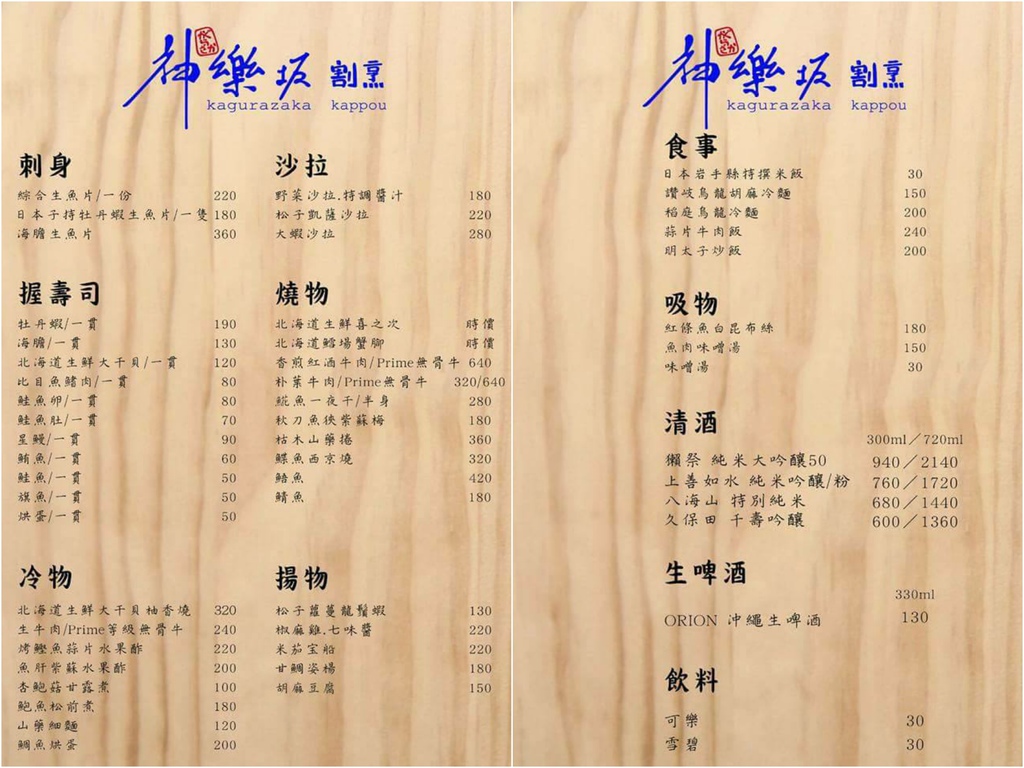 神樂坂 割烹
kagurazaka kappou
刺身
綜合生魚片/一份 220
日本子持牡丹蝦生魚片/一隻 180
海膽生魚片 360
握壽司
牡丹蝦/一貫 190
海膽/一貫 130
北海道生鮮大干貝/一貫 120
比目魚鰭肉/一貫 80
鮭魚卵/一貫 80
鮭魚肚/一貫 70
星鰻/一貫 90
鮪魚/一貫 60
鮭魚/一貫 50
旗魚/一貫 50
烘蛋/一貫 50
冷物
北海道生鮮大干貝柚香燒 320
生牛肉/Prime等級無骨牛 240
烤鰹魚蒜片水果酢 220
魚肝紫蘇水果酢 200
杏鮑菇甘露煮 100
鮑魚松前煮 180
山藥細麵 120
鯛魚烘蛋 200
沙拉
野菜沙拉.特調醬汁 180
松子凱薩沙拉 220
大蝦沙拉 280
燒物
北海道生鮮喜之次 時價
北海道鱈場蟹腳 時價
香煎紅酒牛肉/Prime無骨牛 640
朴葉牛肉/Prime無骨牛 320/640
䱛魚一夜干/半身 280
秋刀魚挾紫蘇梅 180
枯木山藥捲 360
鰈魚西京燒 320
鮨魚 420
鯖魚 180
揚物
松子蘿蔓龍鬚蝦 130
椒麻雞.七味醬 220
米茄宝船 220
甘鯛姿楊 180
胡麻豆腐 150
神樂坂 割烹
kagurazaka kappou
食事
日本岩手縣特撰米飯 30
讚岐烏龍胡麻冷麵 150
稻庭烏龍冷麵 200
蒜片牛肉飯 240
明太子炒飯 200
吸物
紅條魚白昆布絲 180
魚肉味噌湯 150
味噌湯 30
清酒
300ml／720ml
獺祭 純米大吟釀50 940／2140
上善如水 純米吟釀/粉 760／1720
八海山 特別純米 680／1440
久保田 千壽吟釀 600／1360
生啤酒
330ml
ORION 沖繩生啤酒 130
飲料
可樂 30
雪碧 30